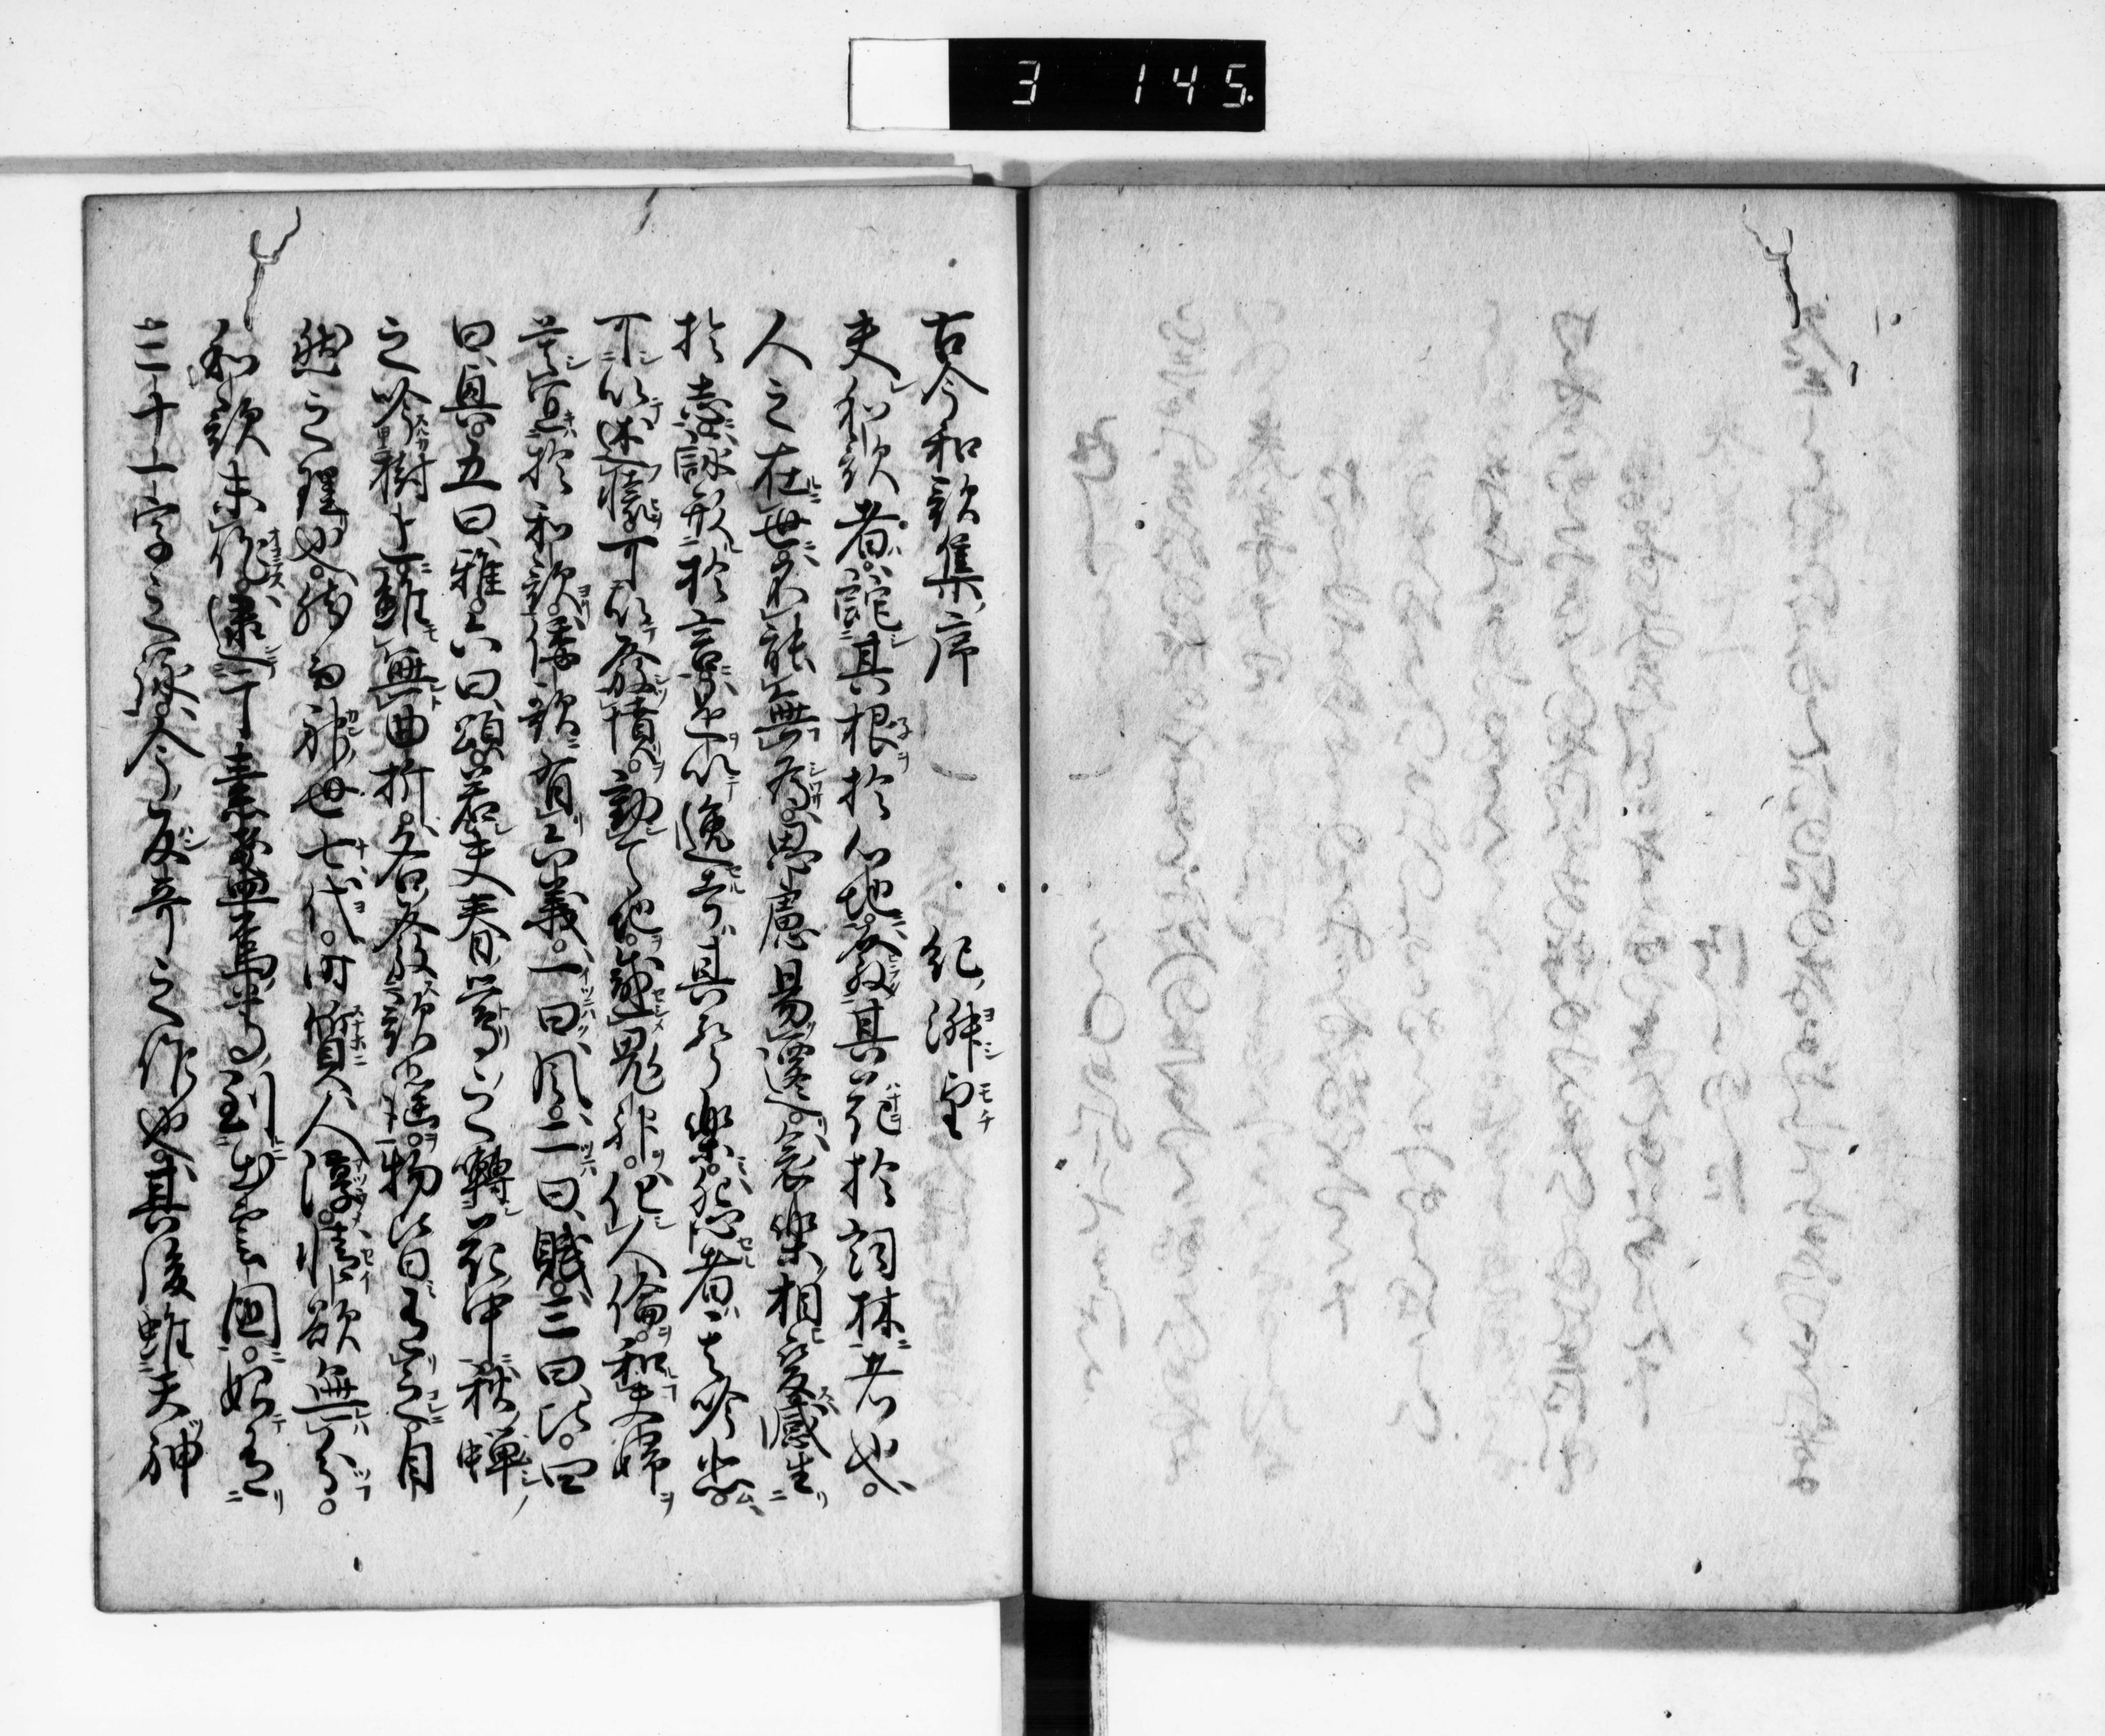 3 145.
古今和歌集序 紀淑望
夫和歌者託其根於心地發其花於詞林者也
人之在世不能無為思慮易遷哀樂相變感生
於志詠形於言是以逸者其聲樂怨者其吟悲
可以述懷可以發憤動天地感鬼神化人倫和夫婦
莫宜於和歌倭歌有六義一曰風二曰賦三曰比四
曰興五曰雅六曰頌若夫春鶯之囀花中秋蟬
之吟樹上雖無曲折各發歌謠物皆有之自
然之理也然而神世七代時質人淳情欲無分
和歌未作逮于素盞烏尊到出雲國始有
三十一字之詠今之反哥之作也其後雖天神